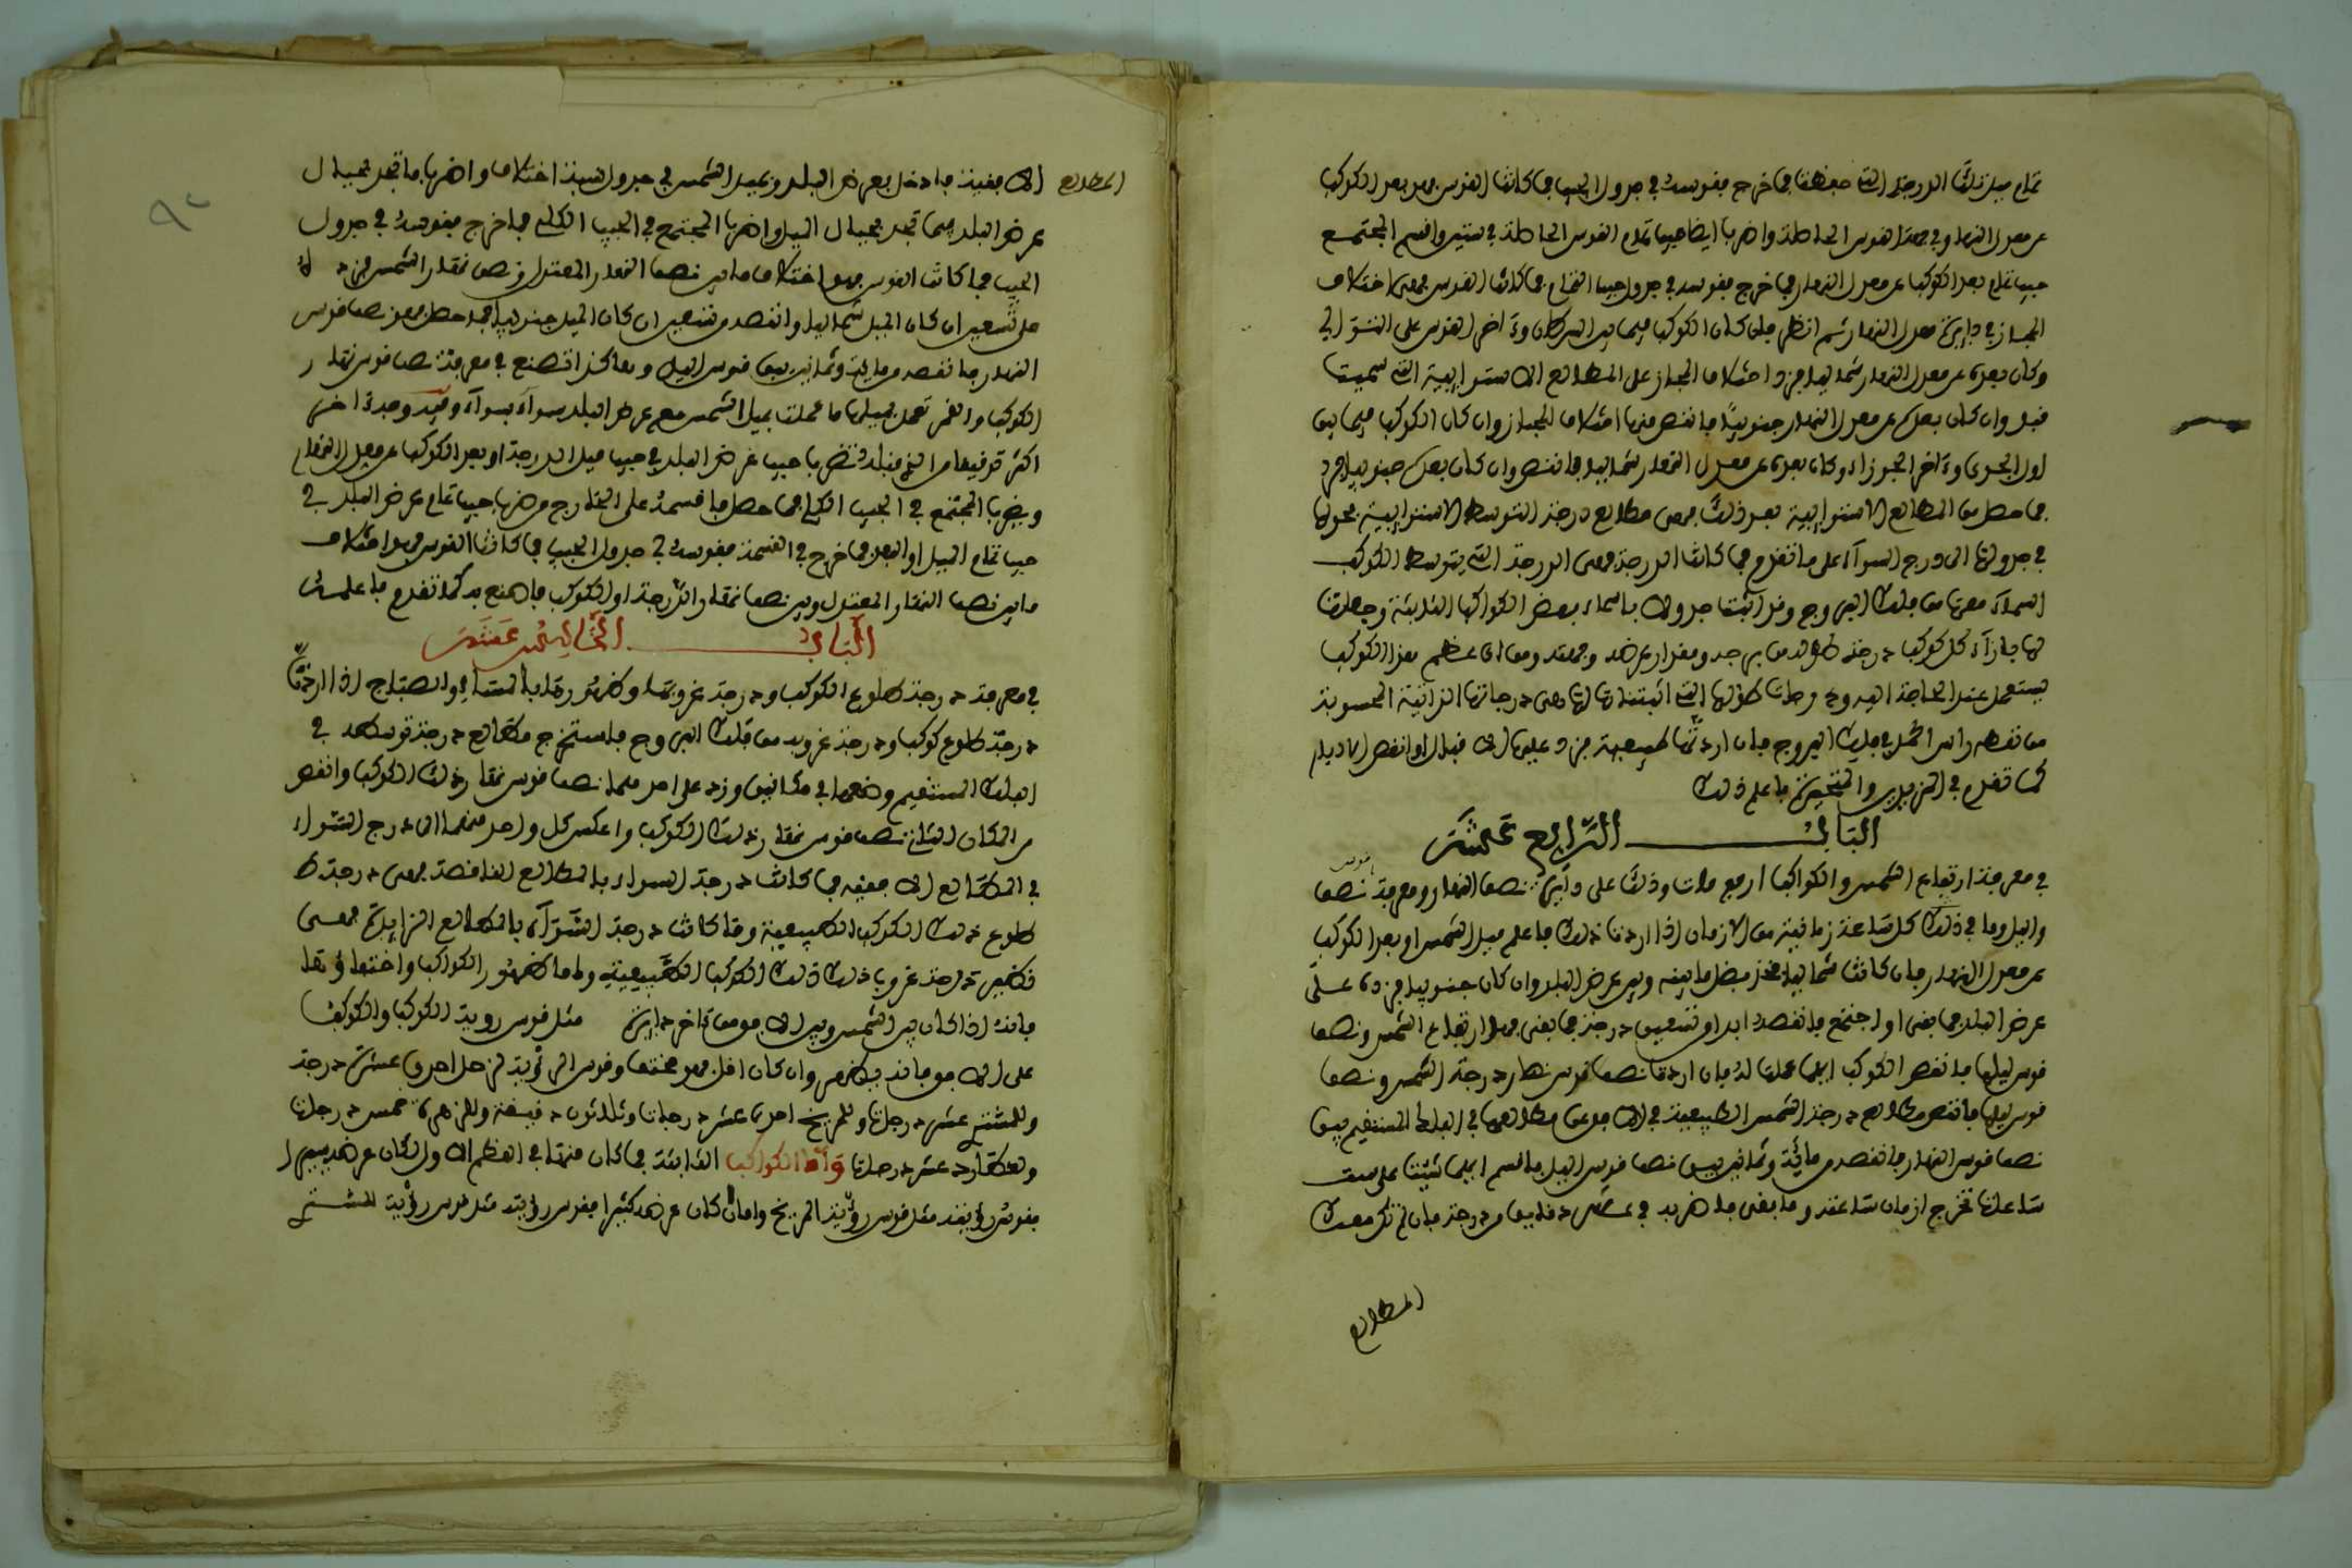 تمام ميل تلك الدرجة التى حفظت فما خرج فقوسه في جدول الجيب فما كانت القوس فهو بعد الكوكب
عن معدل النهار وفي بعد القوس الحاصلة واضرب ايضا جيب تمام القوس الحاصلة في ستين واقسم المجتمع
جيب تمام بعد الكوكب عن معدل النهار فما خرج فقوسه في جدول جيب التمام فما كانت القوس فهى اختلاف
المجاز في دايرة معدل النهار ثم انظر فان كان الكوكب فيما بين السرطان وءاخر القوس على التوالي
وكان بعده عن معدل النهار شماليا فزد اختلاف المجاز على المطالع الاستوايية التى سميت
قبل وان كان بعده عن معدل النهار جنوبيا فانقص منها اختلاف المجاز وان كان الكوكب فيما بين
اول الجدى وءاخر الجوزاء وكان بعده عن معدل النهار شماليا فانقص وان كان بعده جنوبيا فزد
فما حصل من المطالع الاستوايية بعد ذلك فهى مطالع درجة التوسط الاستوايية فحولها
في جدولها الى درج السواء على ما تقدم فما كانت الدرجة فهى الدرجة التى يتوسط الكوكب
السماء معها من فلك البروج وقد اثبتنا جدولا باسماء بعض الكواكب الثابتة وجعلنا
لها بازاء كل كوكب درجة طوله من برجه ومقدار عرضه وجهته ومن اى عظم هذا الكوكب
يستعمل عند الحاجة اليه ودرجات طولها التى اثبتناها لها هى درجاتها الذاتية المحسوبة
من نقطة راس الحمل في فلك البروج فان اردتها طبيعية فزد عليها الاقبال او انقص الادبار
كما تقدم في النيرين والمتحيرة فاعلم ذلك
البـاب الرابع عشر
في معرفة ارتفاع الشمس والكواكب اربع مرات وذلك على دايرة نصف النهار ومعرفة نصف
قوس
والليل وما في ذلك كل ساعة زمانية من الازمان اذا اردت ذلك فاعلم ميل الشمس او بعد الكوكب
عن معدل النهار فان كانت شماليا فخذ فضل ما بينه وبين عرض البلد وان كان جنوبيا فزده على
عرض البلد فما بقى او اجتمع فانقصه ابدا من تسعين درجة فما بقى فهو ارتفاع الشمس ونصف
قوس ليلها فانقص الكوكب ايهما عملت له فان اردت نصف قوس نهار درجة الشمس ونصف
قوس ليلها فانقص مطالع درجة الشمس الطبيعية في الافق من مطالعها في الفلك المستقيم يبق
نصف قوس النهار فانقصه من ماية وثمانين يبق نصف قوس الليل فاقسم ايهما شئت على ست
ساعات تخرج ازمان ساعته وما بقى فاضربه في عشر دقايق من درجة فان لم تكن معك
المطالع
المطالع الافقية فادخل بعرض البلد وبميل الشمس في جدول نسبة اختلاف واضرب ما تجد بحيال
عرض البلد فيما تجد بحيال الميل واضرب المجتمع في الجيب الكلى فما خرج فقوسه في جدول
الجيب فما كانت القوس فهو اختلاف ما بين نصف النهار المعتدل ونصف نهار الشمس فزده
على تسعين ان كان الميل شماليا وانقصه من تسعين ان كان الميل جنوبيا فما حصل فهو نصف قوس
النهار فانقصه من ماية وثمانين يبق قوس الليل وهكذا تصنع في معرفة نصف قوس نهار
الكوكب والقمر تعمل بميلها ما عملت بميل الشمس مع عرض البلد سواء بسواء وفيه وجه ءاخر
اكثر تدقيقا من الذى قبله تضرب جيب عرض البلد في جيب ميل الدرجة او بعد الكوكب عن معدل النهار
وتضرب المجتمع في الجيب الكلى فما حصل فاقسمه على الخارج من ضرب جيب تمام عرض البلد في
جيب تمام الميل او البعد فما خرج في القسمة فقوسه في جدول الجيب فما كانت القوس فهو اختلاف
ما بين نصف النهار المعتدل وبين نصف نهار الدرجة او الكوكب فاصنع به كما تقدم فاعلمه
البـاب الخامس عشر
في معرفة درجة طلوع الكوكب ودرجة غروبها وظهورها بالعشاء والصباح اذا اردت
درجة طلوع كوكب ودرجة غروبه من فلك البروج فاستخرج مطالع درجة توسطه في
الفلك المستقيم وضعها في مكانين وزد على احدهما نصف قوس نهار ذلك الكوكب وانقص
من المكان الثانى نصف قوس نهار ذلك الكوكب واعكس كل واحد منهما الى درج السواء
في المطالع الافقية فما كانت درجة السواء بالمطالع الناقصة فهى درجة
طلوع ذلك الكوكب الطبيعية وما كانت درجة السواء بالمطالع الزايدة فهى
نظير درجة غروب ذلك الكوكب الطبيعية واما ظهور الكواكب واختفاؤها
فانه اذا كان بين الشمس وبين الافق من دايرة مثل قوس روية الكوكب والكوكب
على الافق فانه يظهر وان كان اقل فهو مختف وقوس الرؤية لزحل احدى عشرة درجة
وللمشترى عشر درجات وللمريخ احدى عشر درجات وثلاثون دقيقة وللزهرة خمس درجات
ولعطارد عشر درجات واما الكواكب الثابتة فما كان منها في العظم الاول وكان عرضه يسيرا
فقوس رؤيته مثل قوس رؤية المريخ واما ان كان عرضه كثيرا فقوس رؤيته مثل قوس رؤية المشترى